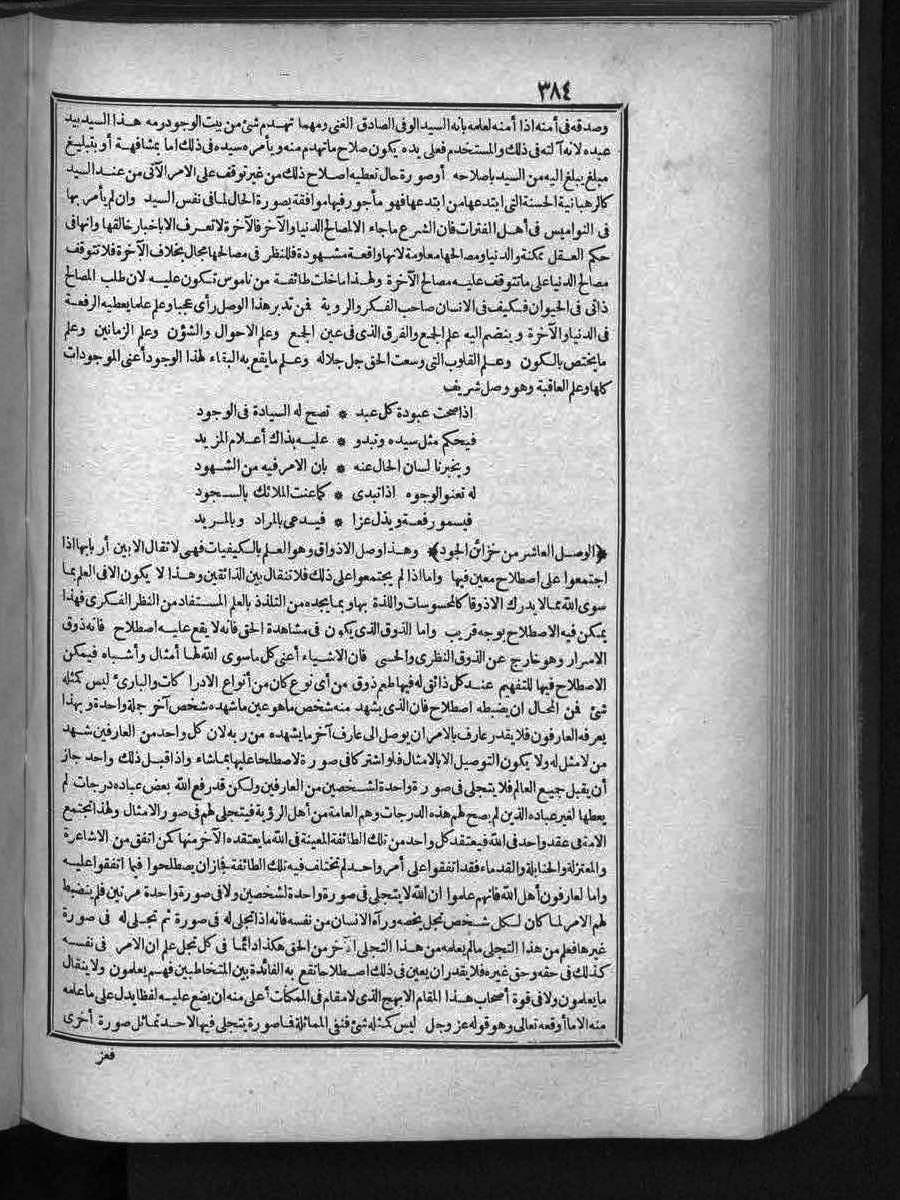 ٣٨٤
وصدقه فى أمنه اذا أمنه لعلمه بانه السيد الوفى الصادق الغنى ومهما تهدم شئ من بيت الوجود رمه هذا السيد بيد
عبده لانه آلته فى ذلك والمستخدم فعلى يده يكون صلاح ما تهدم منه ويأمره سيده فى ذلك اما بمشافهة أو بتبليغ
مبلغ يبلغ اليه من السيد باصلاحه أو صورة حال تعطيه اصلاح ذلك من غير توقف على الامر الآتى من عند السيد
كالرهبانية الحسنة التى ابتدعها من ابتدعها فهو مأجور فيها موافقة بصورة الحال لما فى نفس السيد وان لم يأمر بها
فى النواميس فى أهل الفترات فان الشرع ما جاء الا لمصالح الدنيا والآخرة فالآخرة لا تعرف الا باخبار خالقها وانها فى
حكم العقل ممكنة والدنيا ومصالحها معلومة لانها واقعة مشهودة فللنظر فى مصالحها مجال بخلاف الآخرة فلا تتوقف
مصالح الدنيا على ما تتوقف عليه مصالح الآخرة ولهذا ما خلت طائفة من ناموس تكون عليه لان طلب المصالح
ذاتى فى الحيوان فكيف فى الانسان صاحب الفكر والروية فمن تدبر هذا الوصل رأى عجبا وعلم علما يعطيه الرفعة
فى الدنيا والآخرة وينضم اليه علم الجمع والفرق الذى فى عين الجمع وعلم الاحوال والشؤن وعلم الزمانين وعلم
ما يختص بالكون وعلم القلوب التى وسعت الحق جل جلاله وعلم ما يقع به البقاء لهذا الوجود أعنى الموجودات
كلها وعلم العاقبة وهو وصل شريف
اذا صحت عبودة كل عبد * تصح له السيادة فى الوجود
فيحكم مثل سيده وتبدو * عليه بذاك أعلام المزيد
ويخبرنا لسان الحال عنه * بان الامر فيه من الشهود
له تعنو الوجوه اذا تبدى * كما عنت الملائك بالسجود
فيسمو رفعة ويذل عزا * فيدعى بالمراد وبالمريد
﴿الوصل العاشر من خزائن الجود﴾ وهذا وصل الاذواق وهو العلم بالكيفيات فهى لا تقال الا بين أربابها اذا
اجتمعوا على اصطلاح معين فيها واما اذا لم يجتمعوا على ذلك فلا تنقال بين الذائقين وهذا لا يكون الا فى العلم بما
سوى الله مما لا يدرك الا ذوقا كالمحسوسات واللذة بها وبما يجده من التلذذ بالعلم المستفاد من النظر الفكرى فهذا
يمكن فيه الاصطلاح بوجه قريب واما الذوق الذى يكون فى مشاهدة الحق فانه لا يقع عليه اصطلاح فانه ذوق
الاسرار وهو خارج عن الذوق النظرى والحسى فان الاشياء أعنى كل ما سوى الله لها أمثال وأشباه فيمكن
الاصطلاح فيها للتفهيم عند كل ذائق له فيها طعم ذوق من أى نوع كان من أنواع الادراكات والبارئ ليس كمثله
شئ فمن المحال ان يضبطه اصطلاح فان الذى يشهد منه شخص ما هو عين ما شهده شخص آخر جملة واحدة وبهذا
يعرفه العارفون فلا يقدر عارف بالامر ان يوصل الى عارف آخر ما يشهده من ربه لان كل واحد من العارفين شهد
من لا مثل له ولا يكون التوصيل الا بالامثال فلو اشتركا فى صورة لاصطلحا عليها بما شاء واذا قبل ذلك واحد جاز
أن يقبل جميع العالم فلا يتجلى فى صورة واحدة لشخصين من العارفين ولكن قد رفع الله بعض عباده درجات لم
يعطها لغير عباده الذين لم يصح لهم هذه الدرجات وهم العامة من أهل الرؤية فيتجلى لهم فى صور الامثال ولهذا تجتمع
الامة فى عقد واحد فى الله فيعتقد كل واحد من تلك الطائفة المعينة فى الله ما يعتقده الآخر منها كمن اتفق من الاشاعرة
والمعتزلة والحنابلة والقدماء فقد اتفقوا على أمر واحد لم تختلف فيه تلك الطائفة فجاز ان يصطلحوا فيما اتفقوا عليه
واما لعارفون أهل الله فانهم علموا ان الله لا يتجلى فى صورة واحدة لشخصين ولا فى صورة واحدة مرتين فلم ينضبط
لهم الامر لما كان لكل شخص تجل يخصه ورآه الانسان من نفسه فانه اذا تجلى له فى صورة ثم تجلى له فى صورة
غيرها فعلم من هذا التجلى ما لم يعلمه من هذا التجلى الآخر من الحق هكذا دائما فى كل تجل علم ان الامر فى نفسه
كذلك فى حقه وحق غيره فلا يقدر ان يعين فى ذلك اصطلاحا تقع به الفائدة بين المتخاطبين فهم يعلمون ولا ينقال
ما يعلمون ولا فى قوة أصحاب هذا المقام الابهج الذى لا مقام فى الممكنات أعلى منه ان يضع عليه لفظا يدل على ما علمه
منه الا ما أوقعه تعالى وهو قوله عز وجل ليس كمثله شئ فنفى المماثلة فما صورة يتجلى فيها لاحد تماثل صورة أخرى
فعز